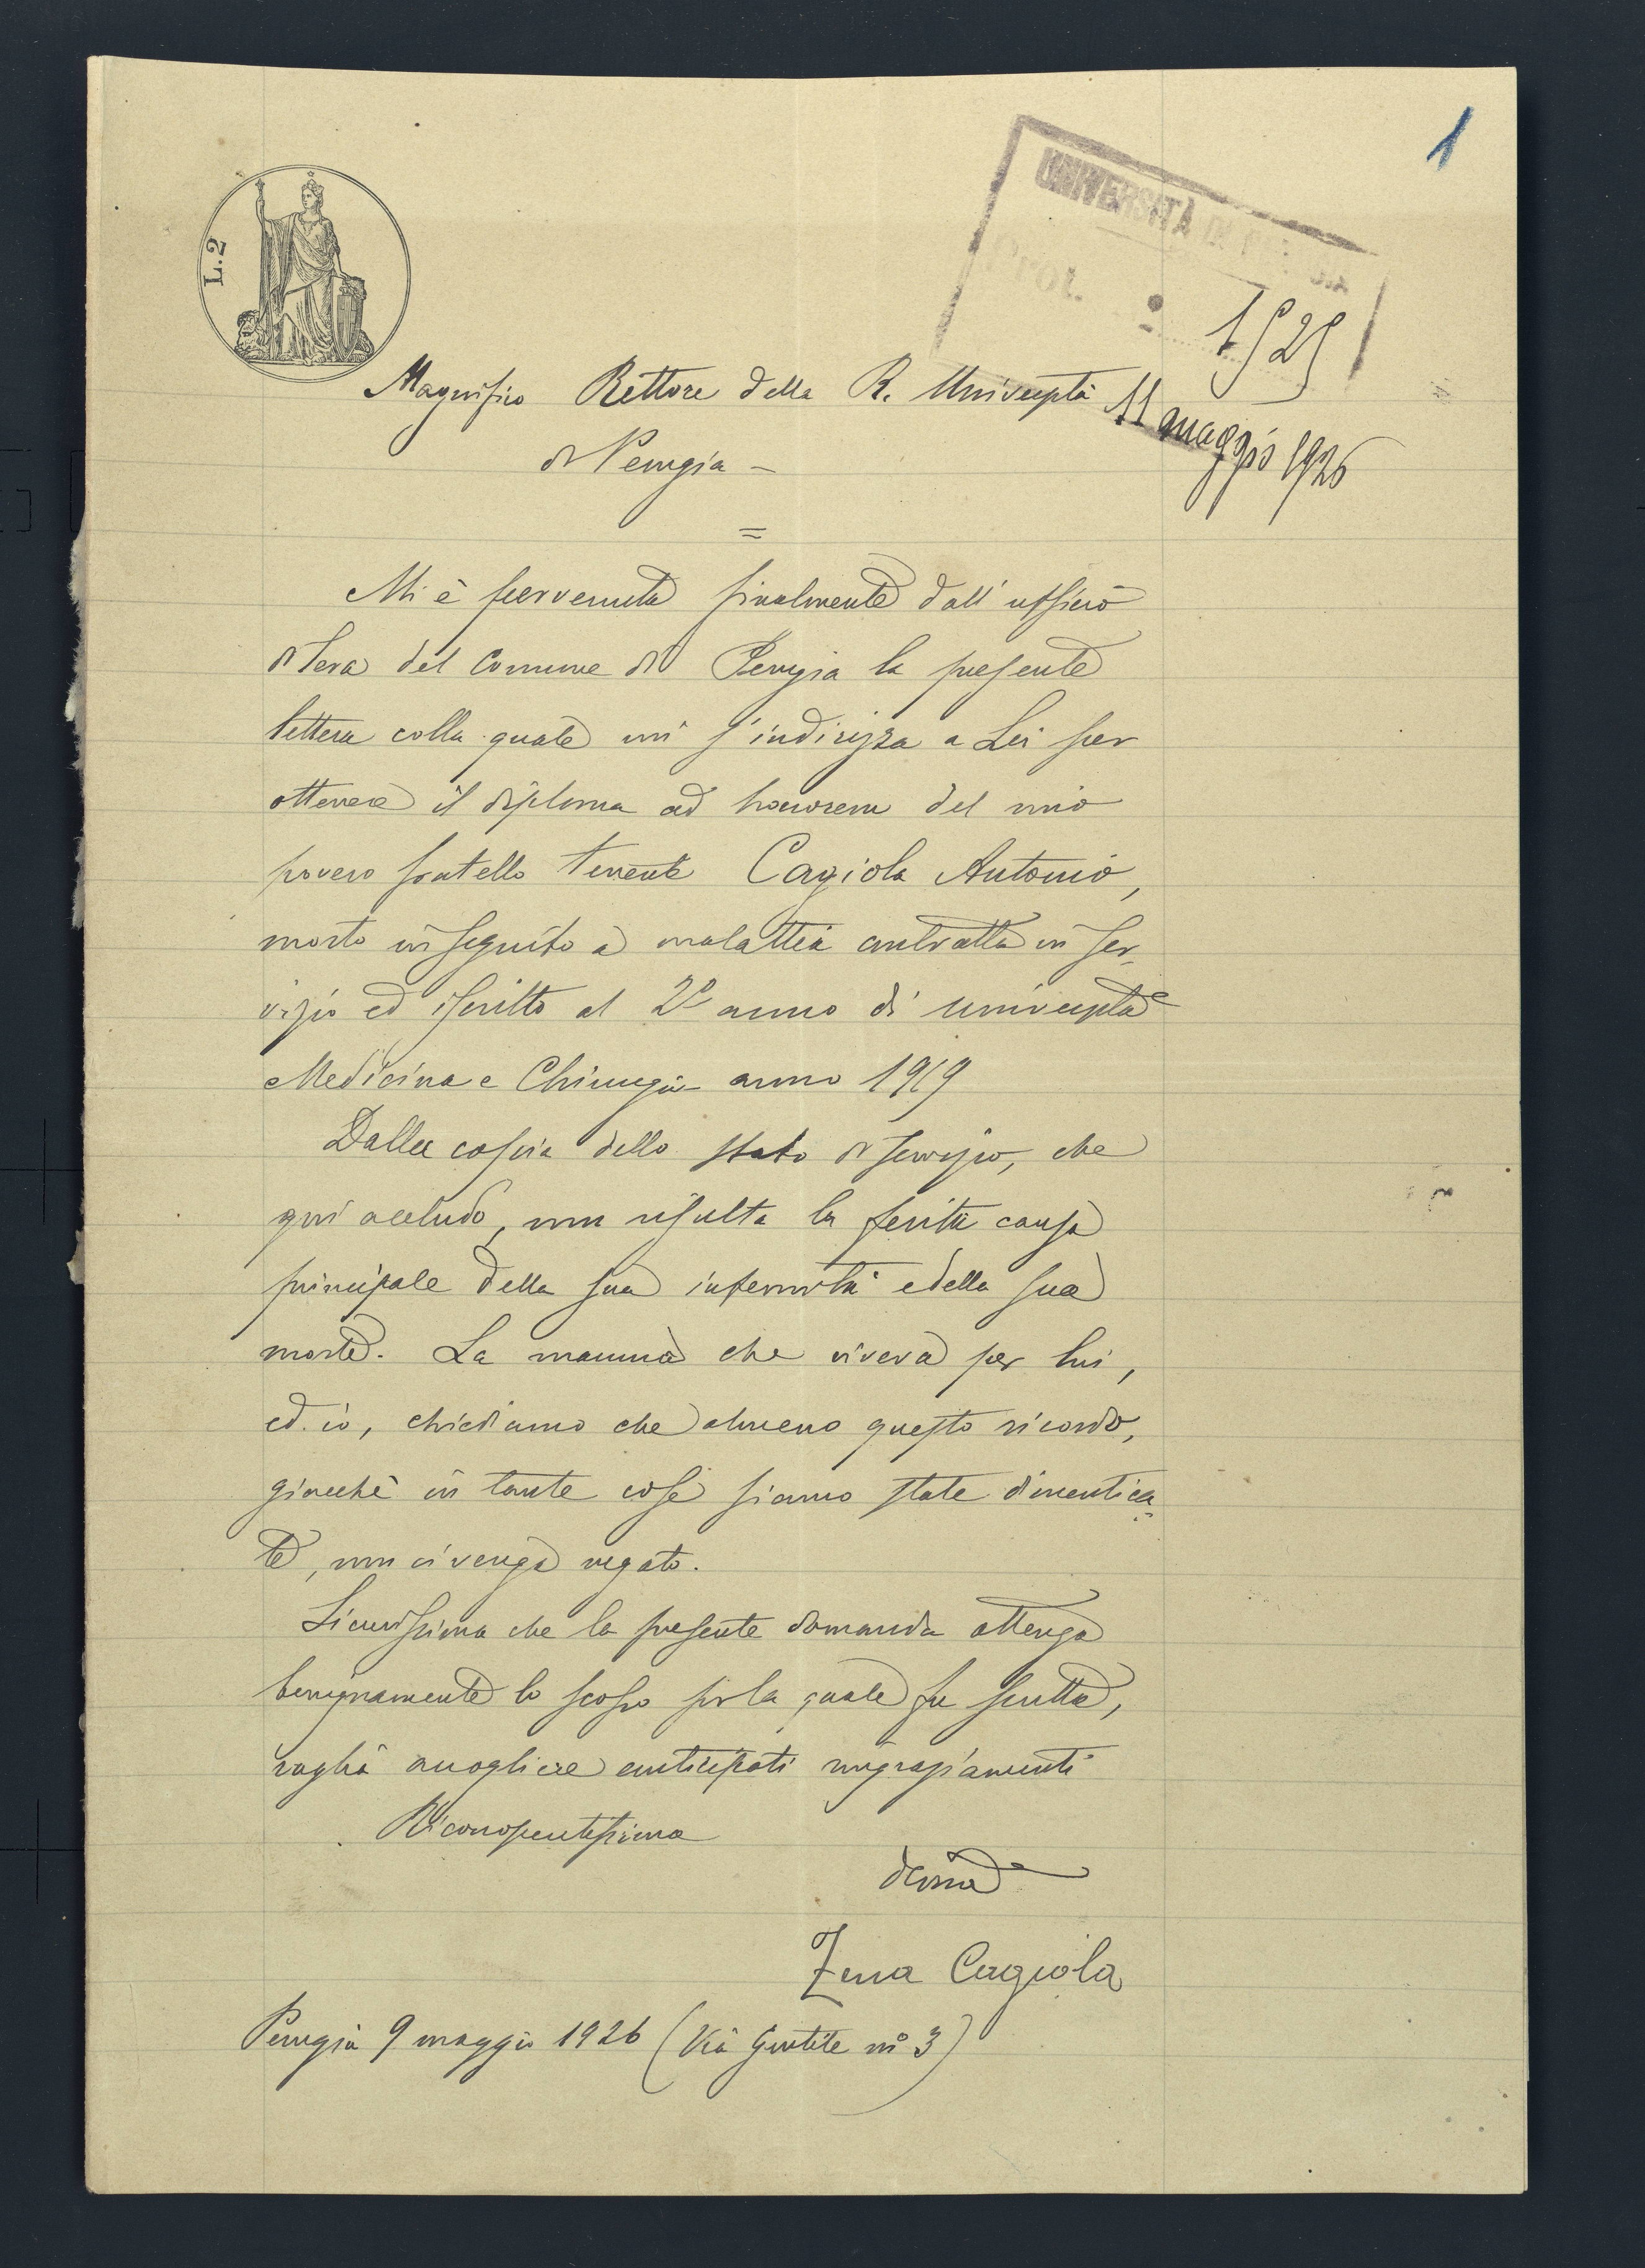 1
L. 2
UNIVERSITÀ DI
Prot.
1525
11 maggio 1926
Magnifico Rettore della R. Università
di Perugia -
=
Mi è pervenuta finalmente dall'ufficio
di leva del Comune di Perugia la presente
lettera colla quale mi s'indirizza a Lei per
ottenere il diploma ad honorem del mio
povero fratello tenente Cagiola Antonio,
morto in seguito a malattia contratta in ser-
vizio ed iscritto al 2º anno di università
Medicina e Chirurgia - anno 1919
Dalla copia dello stato di servizio, che
qui accludo, non risulta la ferita causa
principale della sua infermità e della sua
morte. La mamma che viveva per lui,
ed io, chiediamo che almeno questo ricordo,
giacchè in tante cose siamo state dimentica=
te, non ci venga negato.
Sicurissima che la presente domanda ottenga
benignamente lo scopo per la quale fu scritta,
voglia accogliere anticipati ringraziamenti
Riconoscentissima
devma
Zena Cagiola
Perugia 9 maggio 1926 (Via Gentile nº 3)